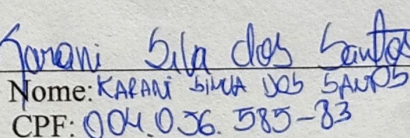 Karani Silva dos Santos
Nome: KARANI SILVA DOS SANTOS
CPF: 004.056.585-83